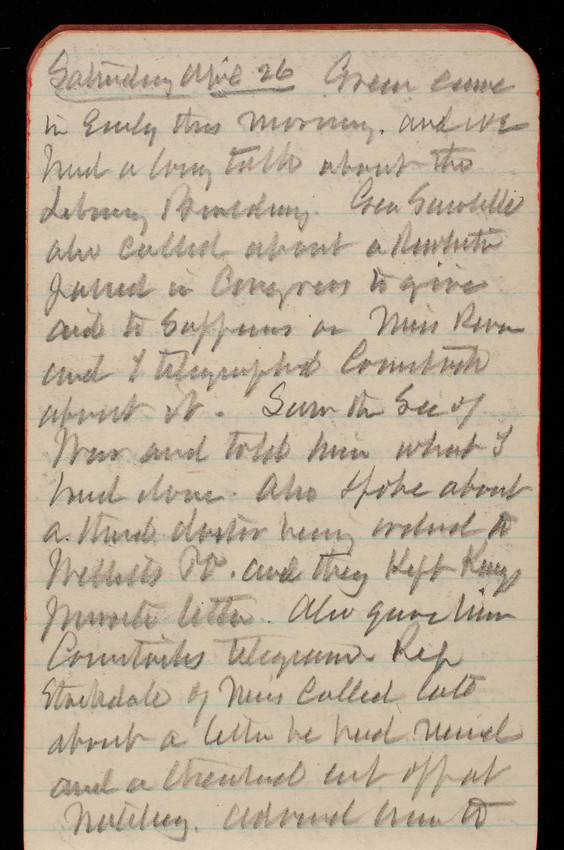 Saturday April 26 Green came
in Early this morning. and we
had a long talk about the
Library Building. Geo Sawtelle
also called about a Resolution
passed in Congress to give
aid to Sufferers on Miss River
and I telegraphed Comstock
about it. Saw the Sec of
War and told him what I
had done. Also spoke about
a third doctor being ordered to
Willets Pt. and they Kept
private letter. Also gave him
Comstocks telegram Rep
Stockdale of Miss Called late
about a letter he had
and a threatened cut off at
Natchez. Advised him to